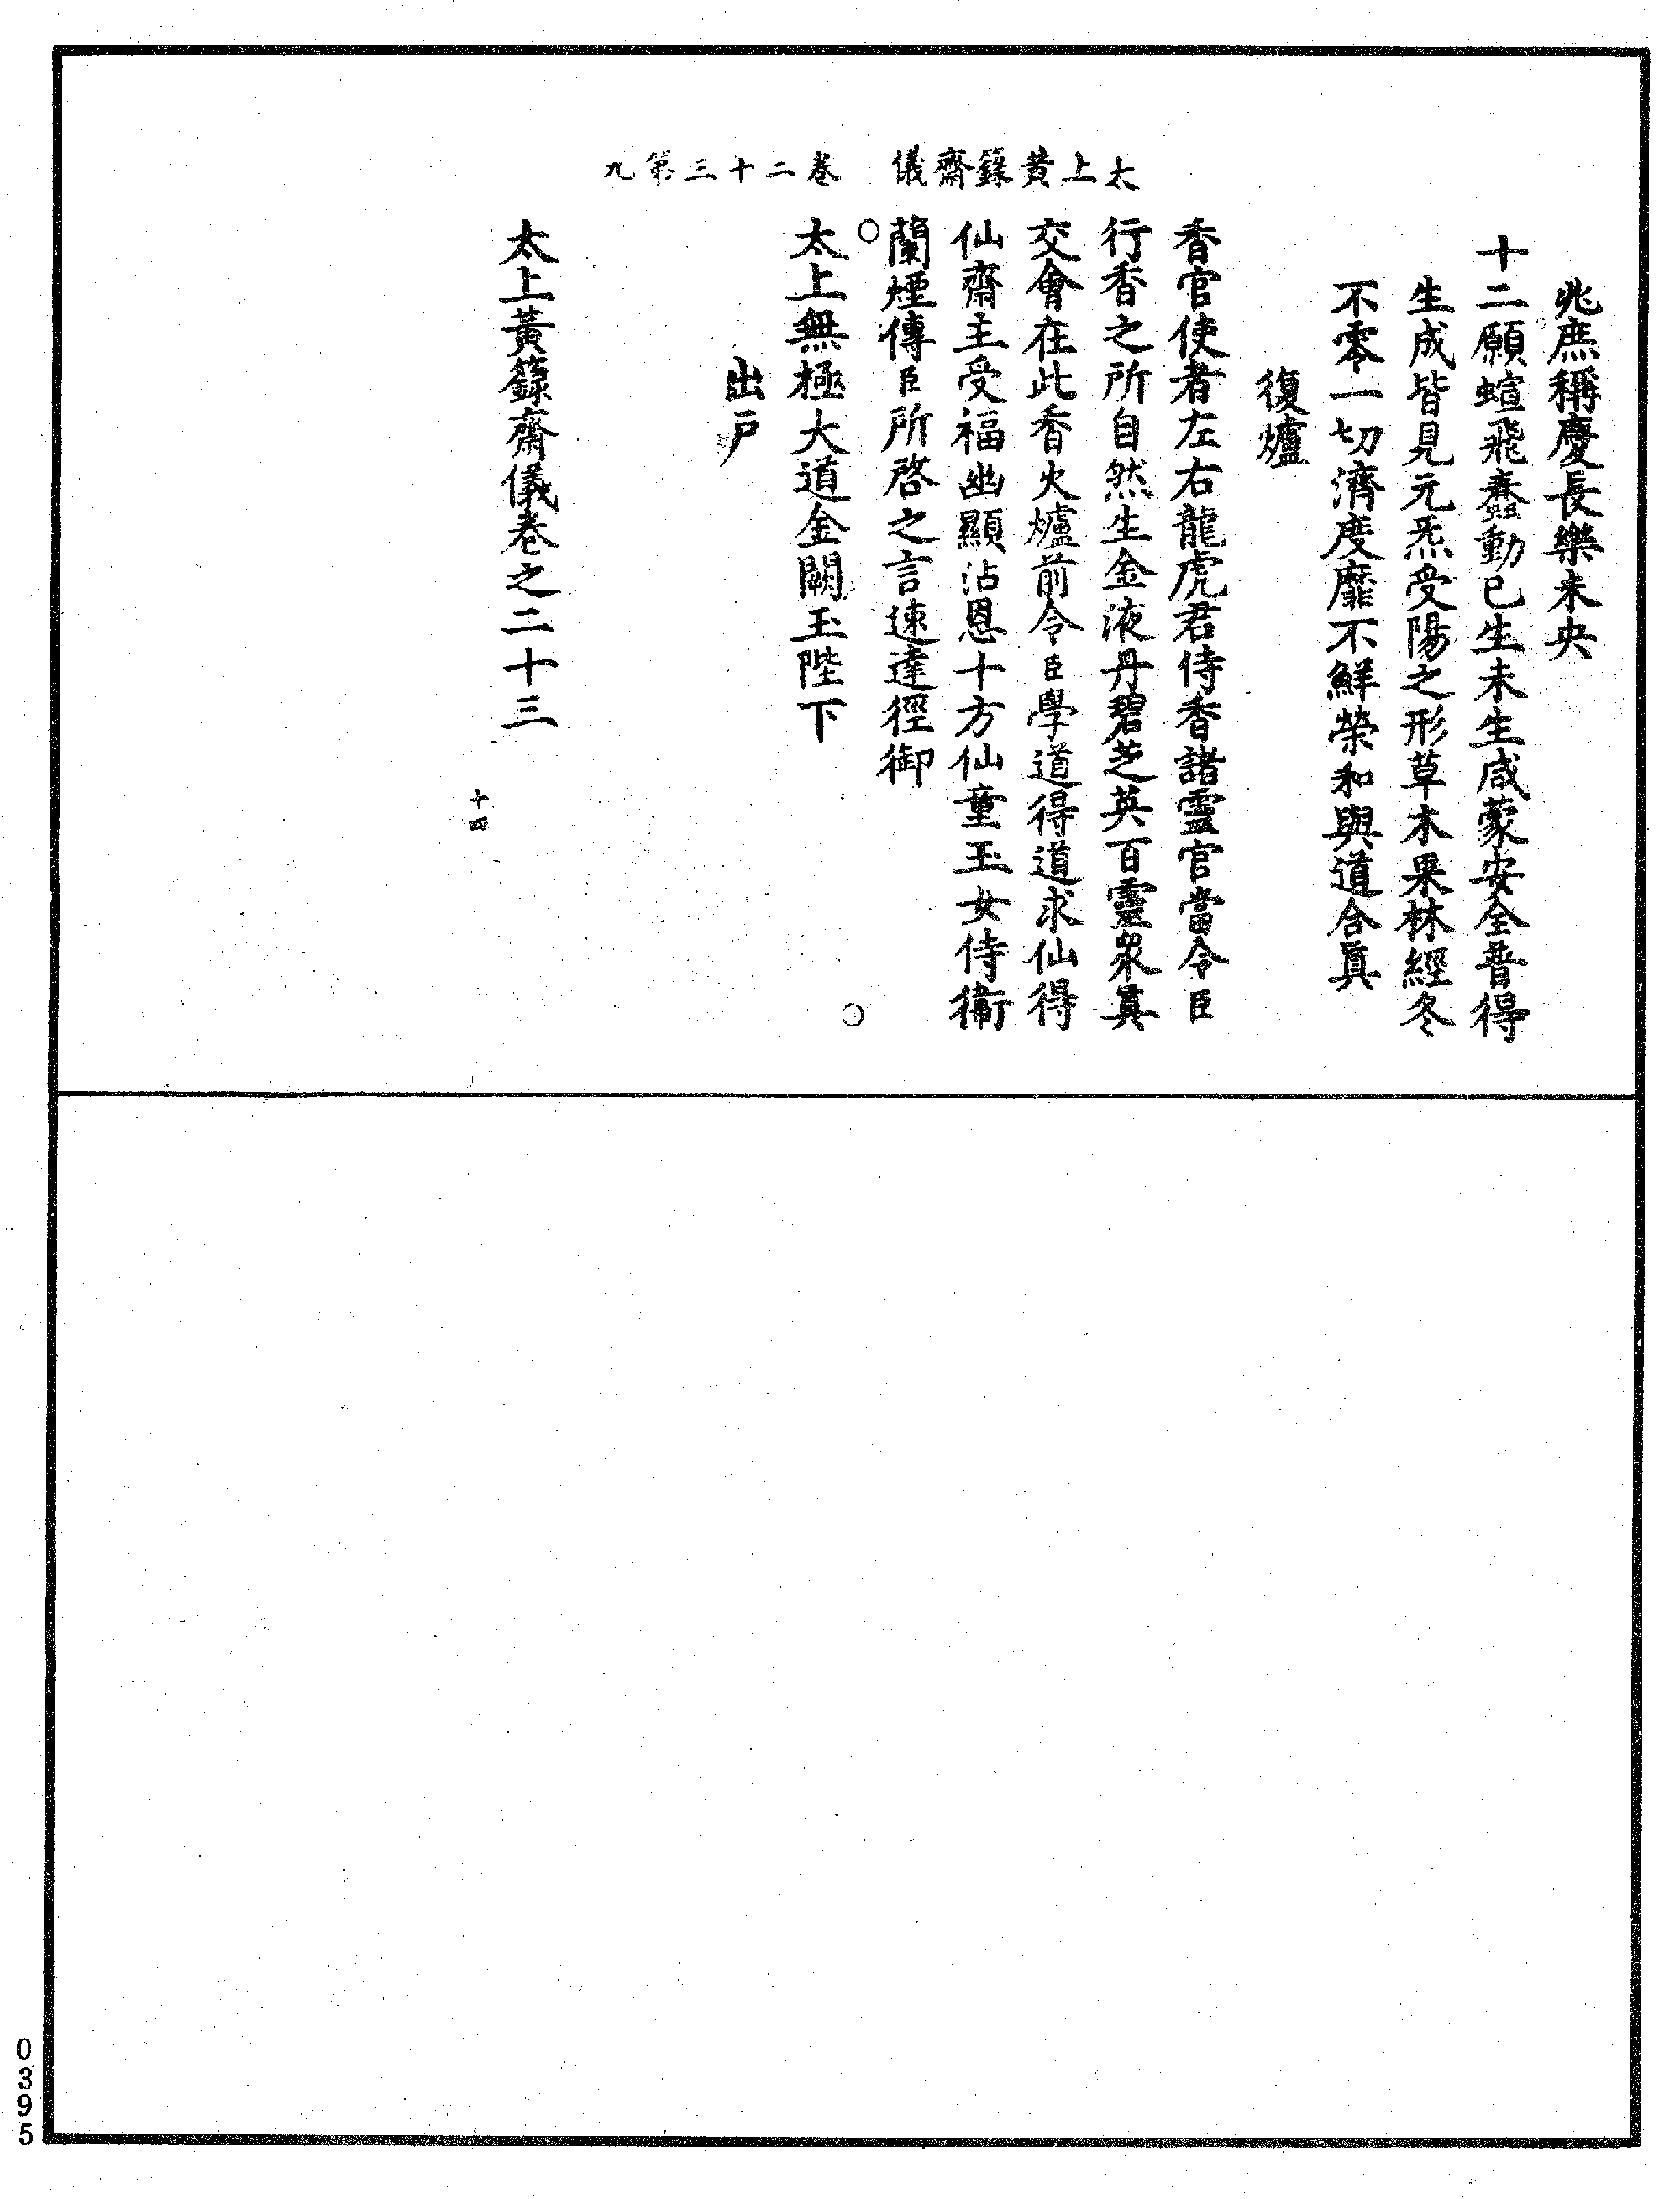 太上黃籙齋儀　卷二十三第九
兆庶稱慶長樂未央
十二願蝖飛蠢動已生未生咸蒙安全普得
生成皆見元炁受陽之形草木果林經冬
不零一切濟度靡不鮮榮和與道合真
復爐
香官使者左右龍虎君侍香諸靈官當令臣
行香之所自然生金液丹碧芝英百靈眾真
交會在此香火爐前令臣學道得道求仙得
仙齋主受福幽顯沾恩十方仙童玉女侍衛
蘭煙傳臣所啓之言速達徑御
太上無極大道金闕玉陛下
出戶
太上黃籙齋儀卷之二十三
十四
0395